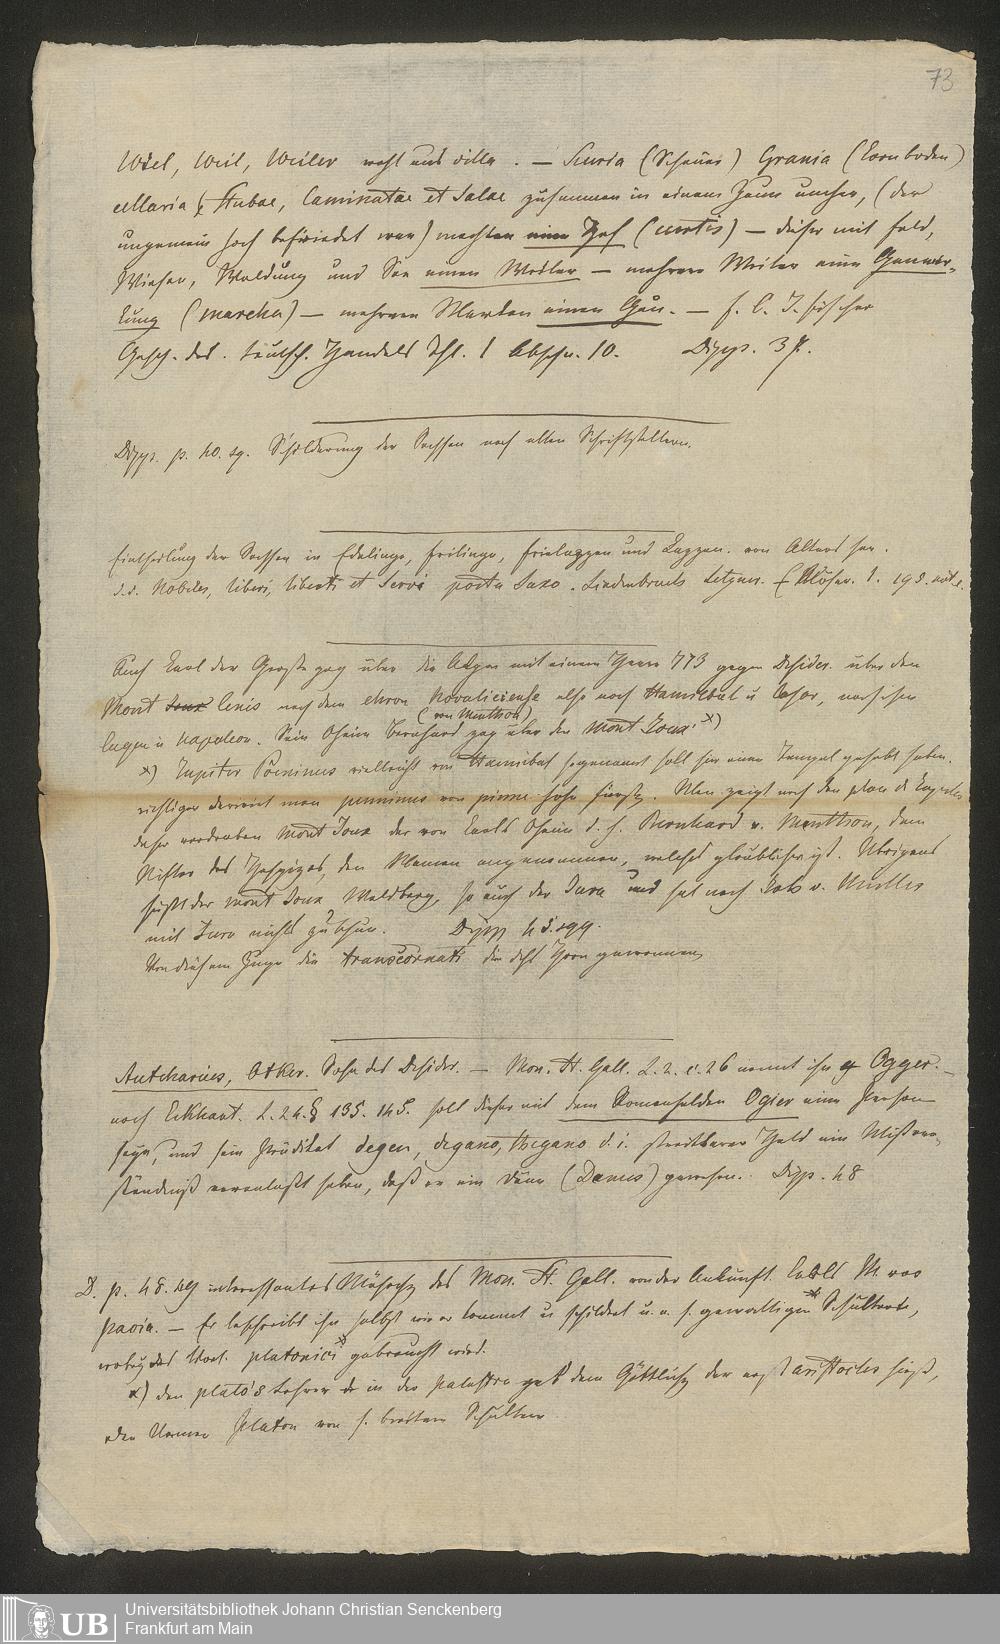 73
Wiel, Weil, Weiler wohl aus villa. — Scuria (Scheuer) Grania (Kornboden)
cellaria, Stubae, Caminatae et Salae zusammen in einem Zaun umher, (der
ungemein hoch befriedet war) machten einen Hof (curtis) — dieser mit Feld,
Wiesen, Waldung und See einen Weiler — mehrere Weiler eine Gemar-
kung (marcha) — mehrere Marken einen Gau. — F. C. J. Fischer
Gesch. des teutsch. Handels Thl. 1 Abschn. 10. Dipp. 37.
Dipp. p. 40. sq. Schilderung der Sachsen nach alten Schriftstellern.
Eintheilung der Sachsen in Edelinge, Frilinge, Frielazzen und Lazzen von Alters her.
d.i. Nobiles, liberi, liberti et Servi poeta Saxo. Lindenbruch Möser. 1. 198.
Auch Karl der Große zog über die Alpen mit einem Heere 773 gegen Desider. über den
Mont Joux Cenis nach dem chron. Novaliciense also nach Hannibal u Cäsar,
Eugen u Napoleon. Sein Oheim Bernhard zog über den Mont Joux. x)
(von Menthon)
x) Jupiter Poeninus vielleicht von Hannibal sogenannt soll hier einen Tempel gehabt haben.
richtiger derivirt man penninus von pinne hohe Man zeigt noch den plan de Jupiter
daher verdorben Mont Joux der von Karls Oheim d. h. Bernhard v. Menthon, dem
Stifter des Hospizes, den Namen angenommen, welches glaublicher ist. Übrigens
heißt der mont Joux Waldberg, so auch der Jura und hat nach Joh v. Müller
mit Jura nichts zu thun. Dipp 45. 299.
Von diesem Zuge die transcornati die des Horn gewonnen
Autcharius, Otker. Sohn des Desider. — Mon. St. Gall. L. 2. c. 26 nennt ihn Ogger. —
nach Eckhart. L. 24. § 135. 145. soll dieser mit dem Romanhelden Ogier eine Person
seyn, und sein Prädikat degen, degano, thegano d. i. streitbarer Held ein Mißver-
ständniß veranlaßt haben, daß er ein Däne (Danus) gewesen. Dipp. 48
D. p. 48. 49 interessantes Mährchen des Mon. St. Gall. von der Ankunft Carls M. vor
Pavia. — Er beschreibt ihn selbst wie er kommt u schildert u. a. s. gewaltigen Schultern,
wobey das Wort platonici x gebraucht wird.
x) den plato's Lehrer in der palestra gab dem Göttlichen der erst aristocles hieß,
den Namen Platon von s. breiten Schultern
UB Universitätsbibliothek Johann Christian Senckenberg
Frankfurt am Main